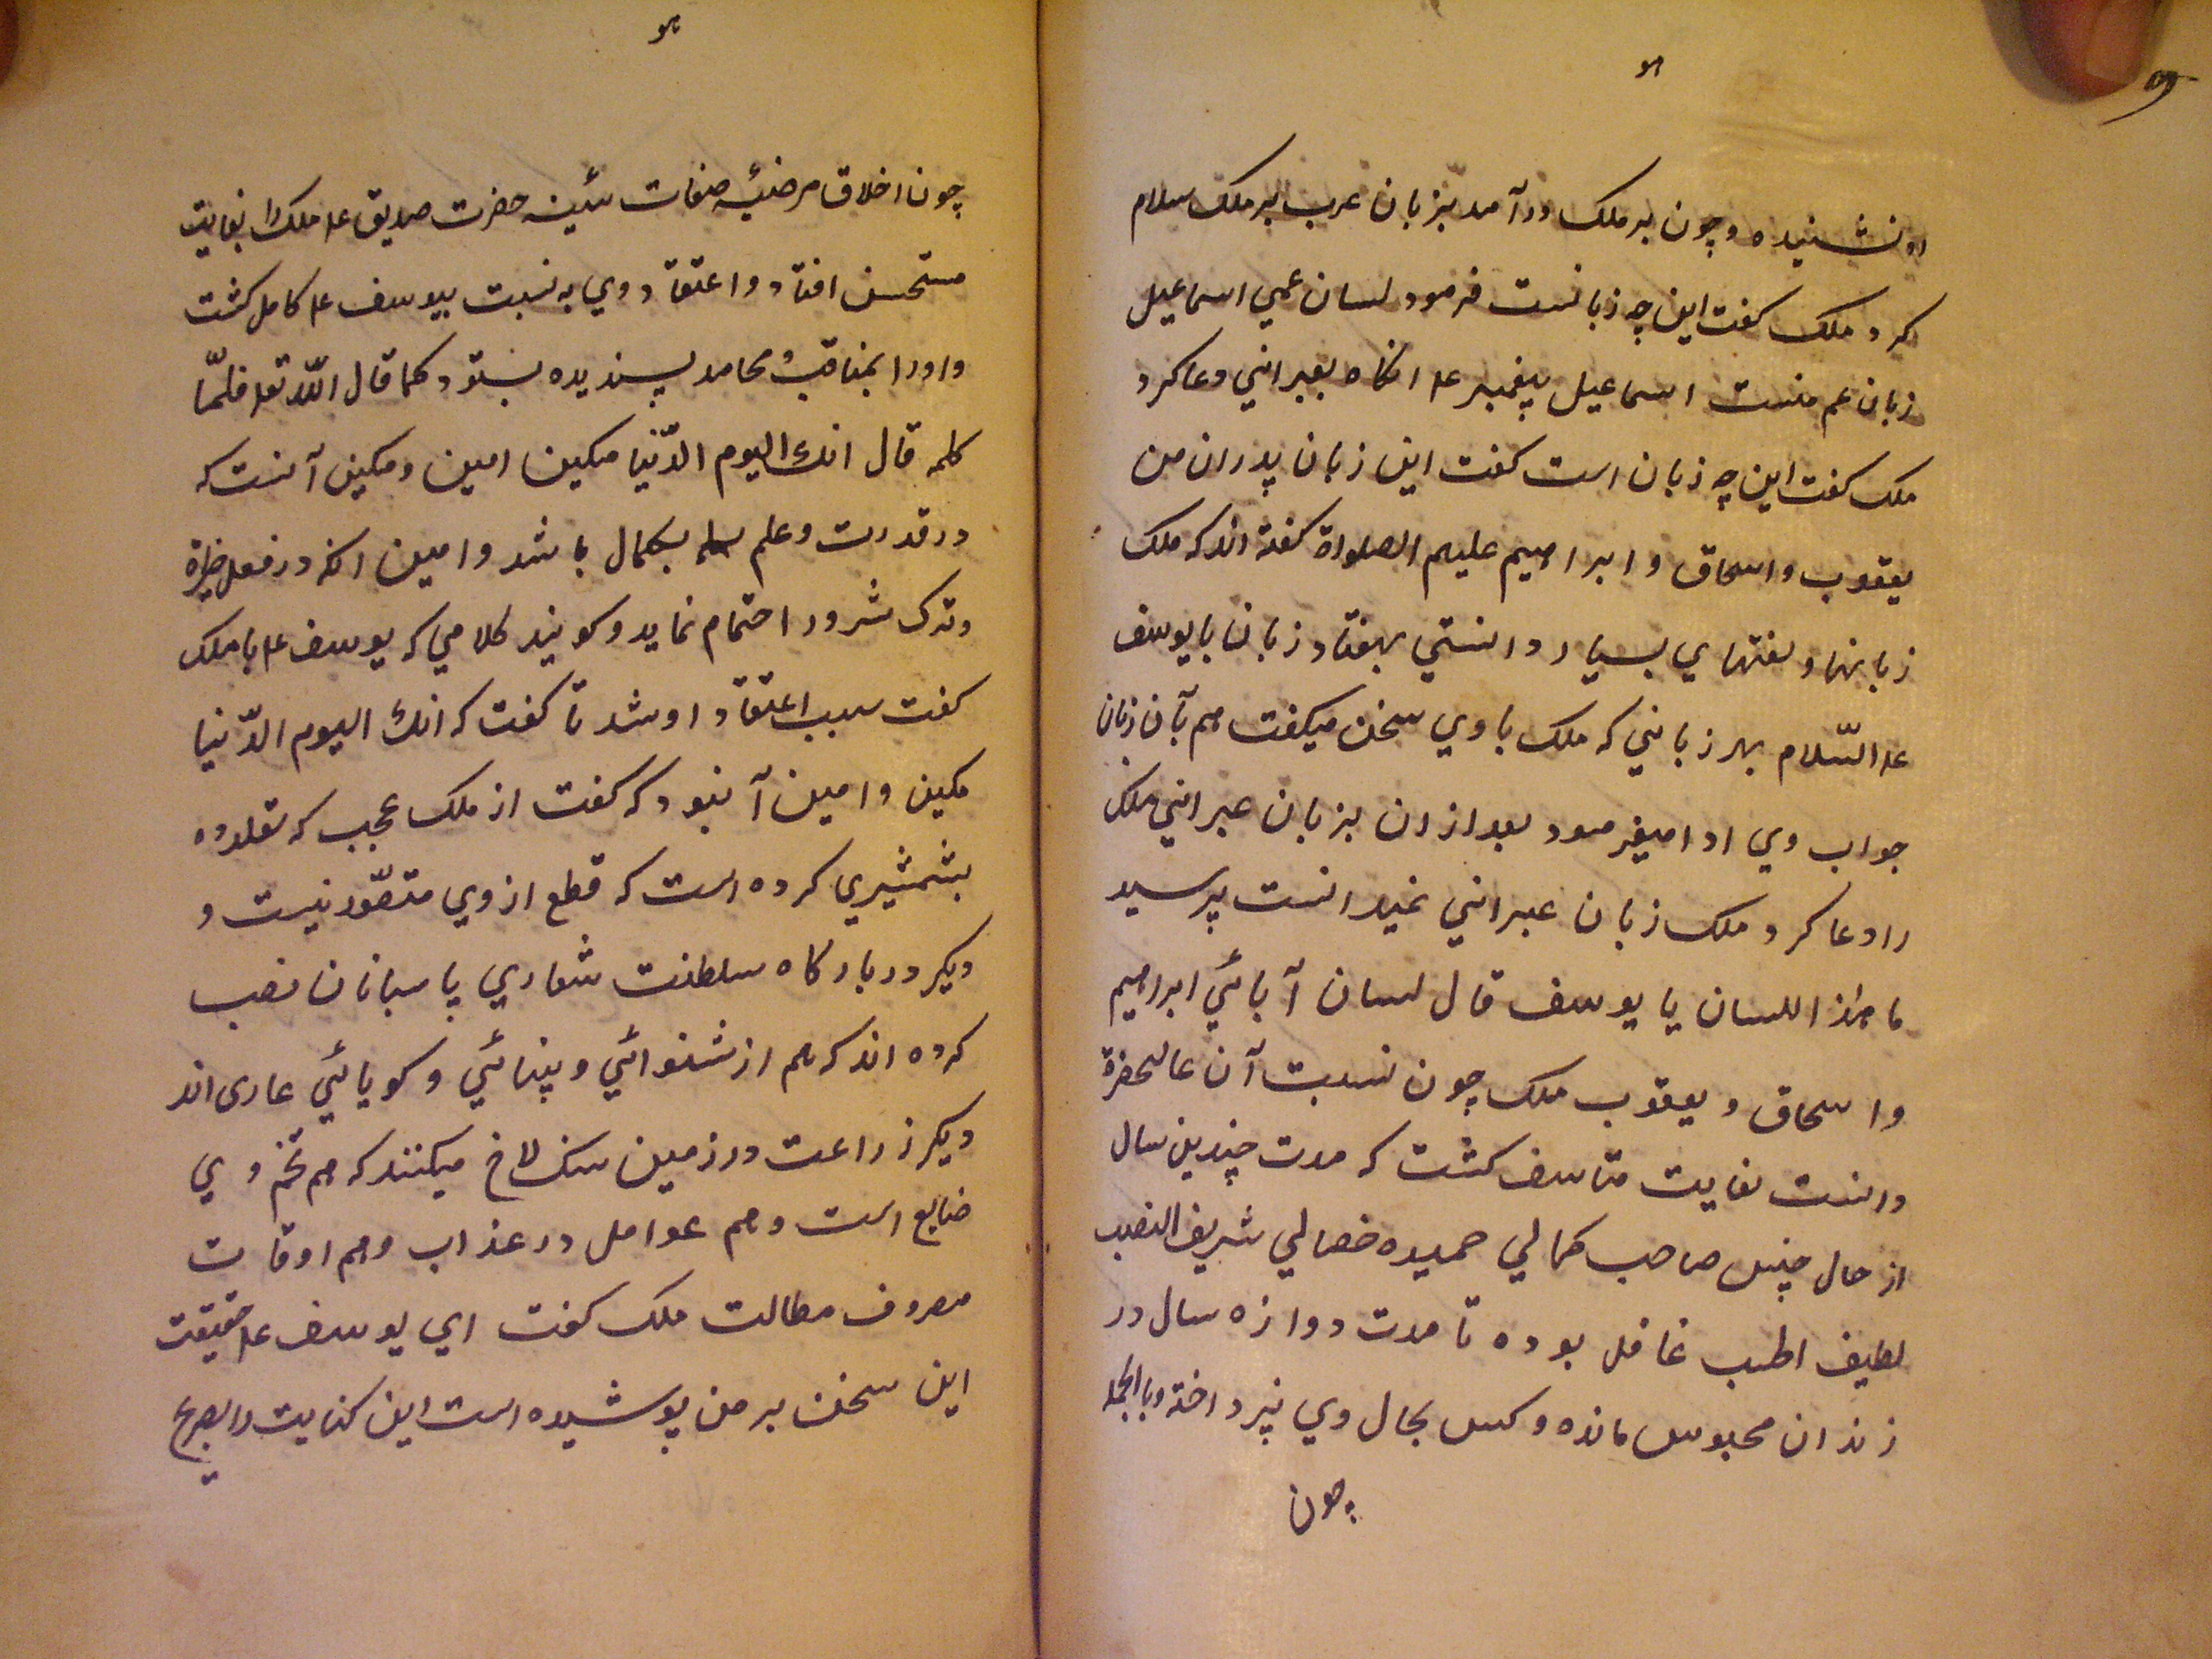 هو
او نشنیده و چون بر ملک در آمد بزبان عرب بر ملک سلام
کرد ملک کفت این چه زبانست فرمود لسان عمي اسماعیل
زبان عم منست اسماعیل پیغمبر عه انکاه بعبراني دعا کرد
ملک کفت این چه زبان است کفت این زبان پدران من
یعقوب و اسحاق و ابراهیم علیهم الصلواة کفته اند که ملک
زبانها و لغتهاي بسیار دانستي بهفتاد زبان با یوسف
عه السّلام بهر زباني که ملک با وي سخن میکفت هم بآن زبان
جواب وي ادا میفرمود بعد ازان بزبان عبراني ملک
را دعا کرد ملک زبان عبراني نمیدانست پرسید
ما هذا اللسان یا یوسف قال لسان آبائي ابراهیم
و اسحاق و یعقوب ملک چون نسبت آن عالیحضرة
دانست بغایت متاسف کشت که مدت چندین سال
از حال چنین صاحب کمالي حمیده خصالي شریف النصب
لطیف اطب غافل بوده تا مدت دوازه سال در
زندان محبوس مانده و کس بحال وي نپرداخته و بالجمله
چون
هو
چون اخلاق مرضیّه صفات سنّیه حضرت صدیق عه ملک را بغایت
مستحسن افتاد و اعتقاد وي به نسبت بیوسف عه کامل کشت
و اورا بمناقب و محامد پسندیده بستود کما قال اللّه تعه فلمّا
کلمه قال انك الیوم الدّنیا مکین امین و مکین آنست که
در قدرت و علم بکمال باشد و امین انکه در فعل خیرة
و ترک شرور احتمام نماید و کویند کلامي که یوسف عه با ملک
کفت سبب اعتقاد او شد تا کفت که انك الیوم الدّنیا
مکین و امین آنبود که کفت از ملک عجب که تقلده
بشمشیري کرده است که قطع از وي متصّور نیست و
دیکر در بارکاه سلطنت شعاري پاسبانان نصب
کرده اند که هم از شنوائي و بینائي و کویائي عاری اند
دیکر زراعت در زمین سنک لاخ میکنند که هم تخم وي
ضایع است و هم عوامل در عذاب و هم اوقات
مصروف مطالت ملک کفت اي یوسف عه حقیقت
این سخن بر من پوشیده است این کنایت را بصرح